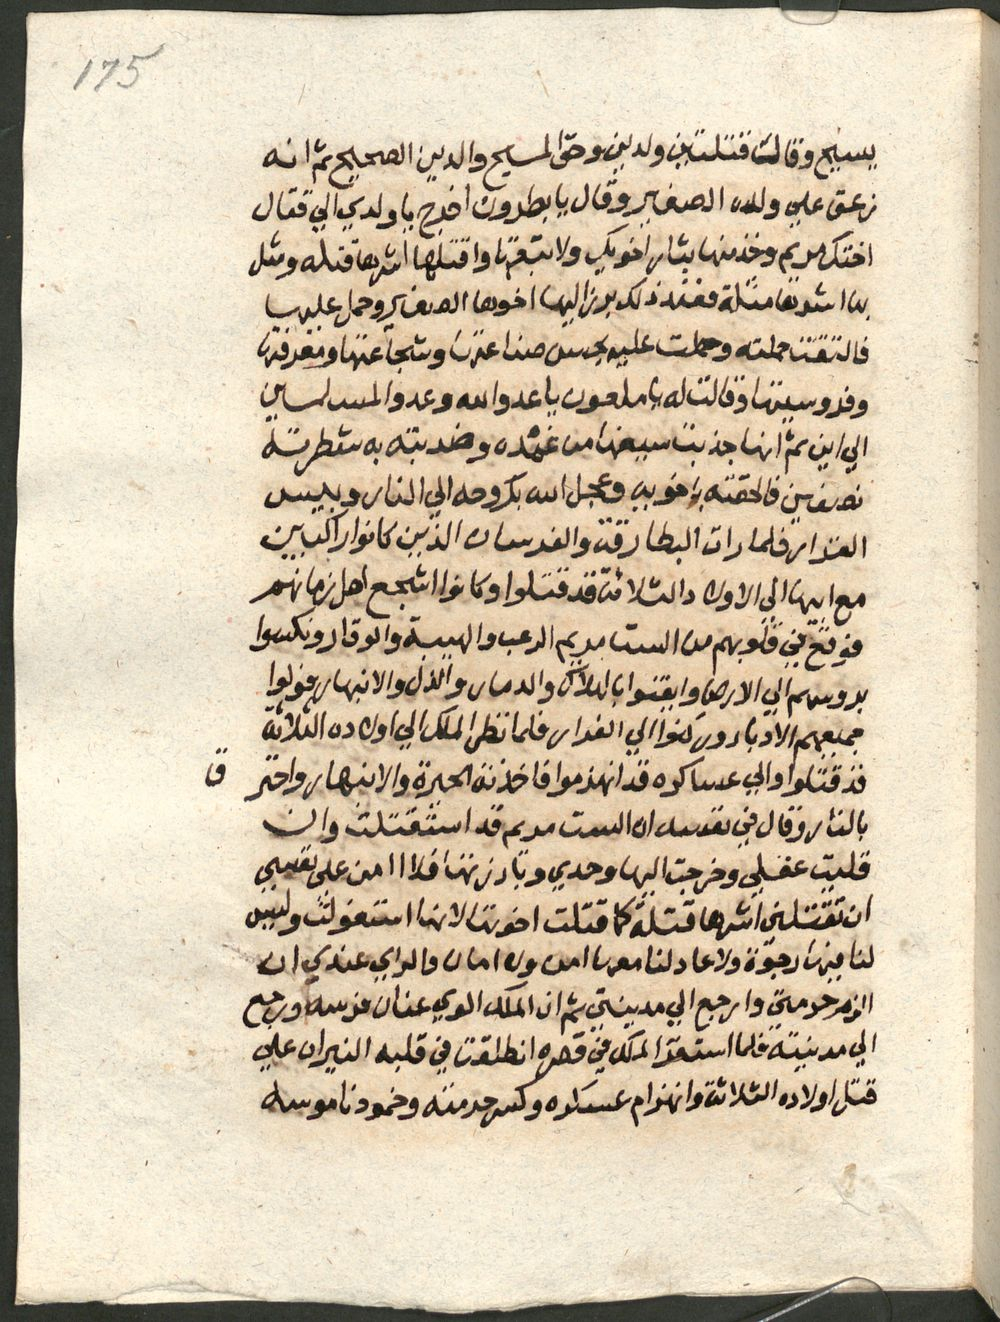 175
يسيح وقالت قتلتين ولدين وحق المسيح والدين الصحيح ثم انه
زعق علي ولده الصغير وقال يا بطروت اخرج يا ولدي الي قتال
اختك مريم وخذ منها بثار اخويك ولا تبقيها واقتلها اشرها قتله ومثل
بها اشدها مثلة فعند ذلك برز اليها اخوها الصغير وحمل عليها
فالتقت حملته وحملت عليه بحسن صناعتها وشجاعتها ومعرفتها
وفروسيتها وقالت له يا ملعون يا عدو الله وعدو المسلمين
الي اين ثم انها جذبت سيفها من غمده وضربته به شطرته
نصفين فالحقته باخويه وعجل الله بروحه الي النار وبيس
القرار فلما رات البطارقة والفرسان الذين كانوا راكبين
مع ابيها الي الاولاد الثلاثة قد قتلوا وكانوا اشجع اهل زمانهم
فوقع في قلوبهم من الست مريم الرعب والهيبة والوقار ونكسوا
بروسهم الي الارض وايقنوا بالهلاك والدمار والذل والانبهار فولوا
جميعهم الادبار وركنوا الي الفرار فلما نظر الملك الي اولاده الثلاثة
قد قتلوا والي عساكره قد انهزموا فاخذته الحيرة والانبهار واحتر
ق
بالنار وقال في نفسه ان الست مريم قد استقتلت وان
قليت عقلي وخرجت اليها وحدي وبارزتها فلا امن علي نفسي
ان تقتلني اشرها قتلة كما قتلت اخوتها لانها استغولت وليس
لنا فيها رجوة ولا عاد لنا معها امن ولا امان والراي عندي ان
الزم حرمتي وارجع الي مدينتي ثم ان الملك الوي عنان فرسه ورجع
الي مدينته فلما استقر الملك في قصره انطلقت في قلبه النيران علي
قتل اولاده الثلاثة وانهزام عسكره وكسر حرمته وخمود ناموسه